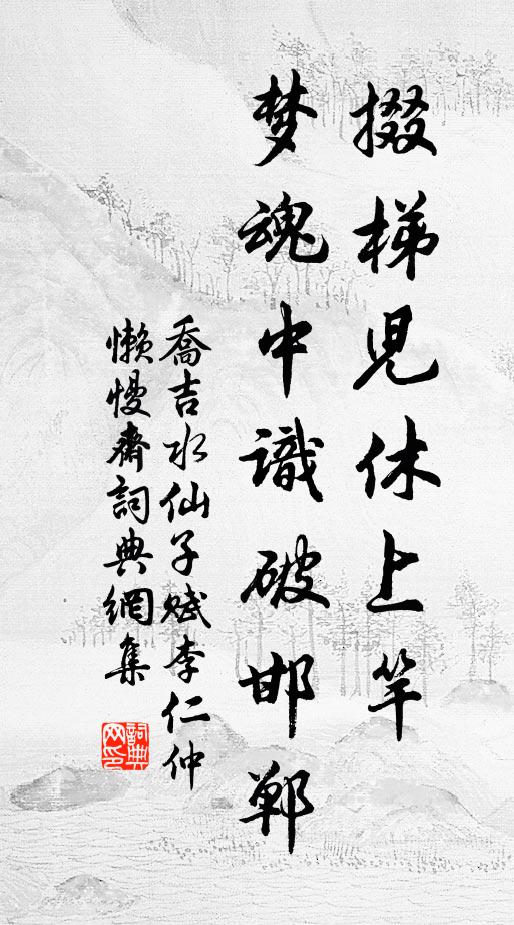 掇梯兒休上竿
梦魂中識破邯鄲
喬吉水仙子賦李仁仲
懶慢齋詞典網集
詞典网印